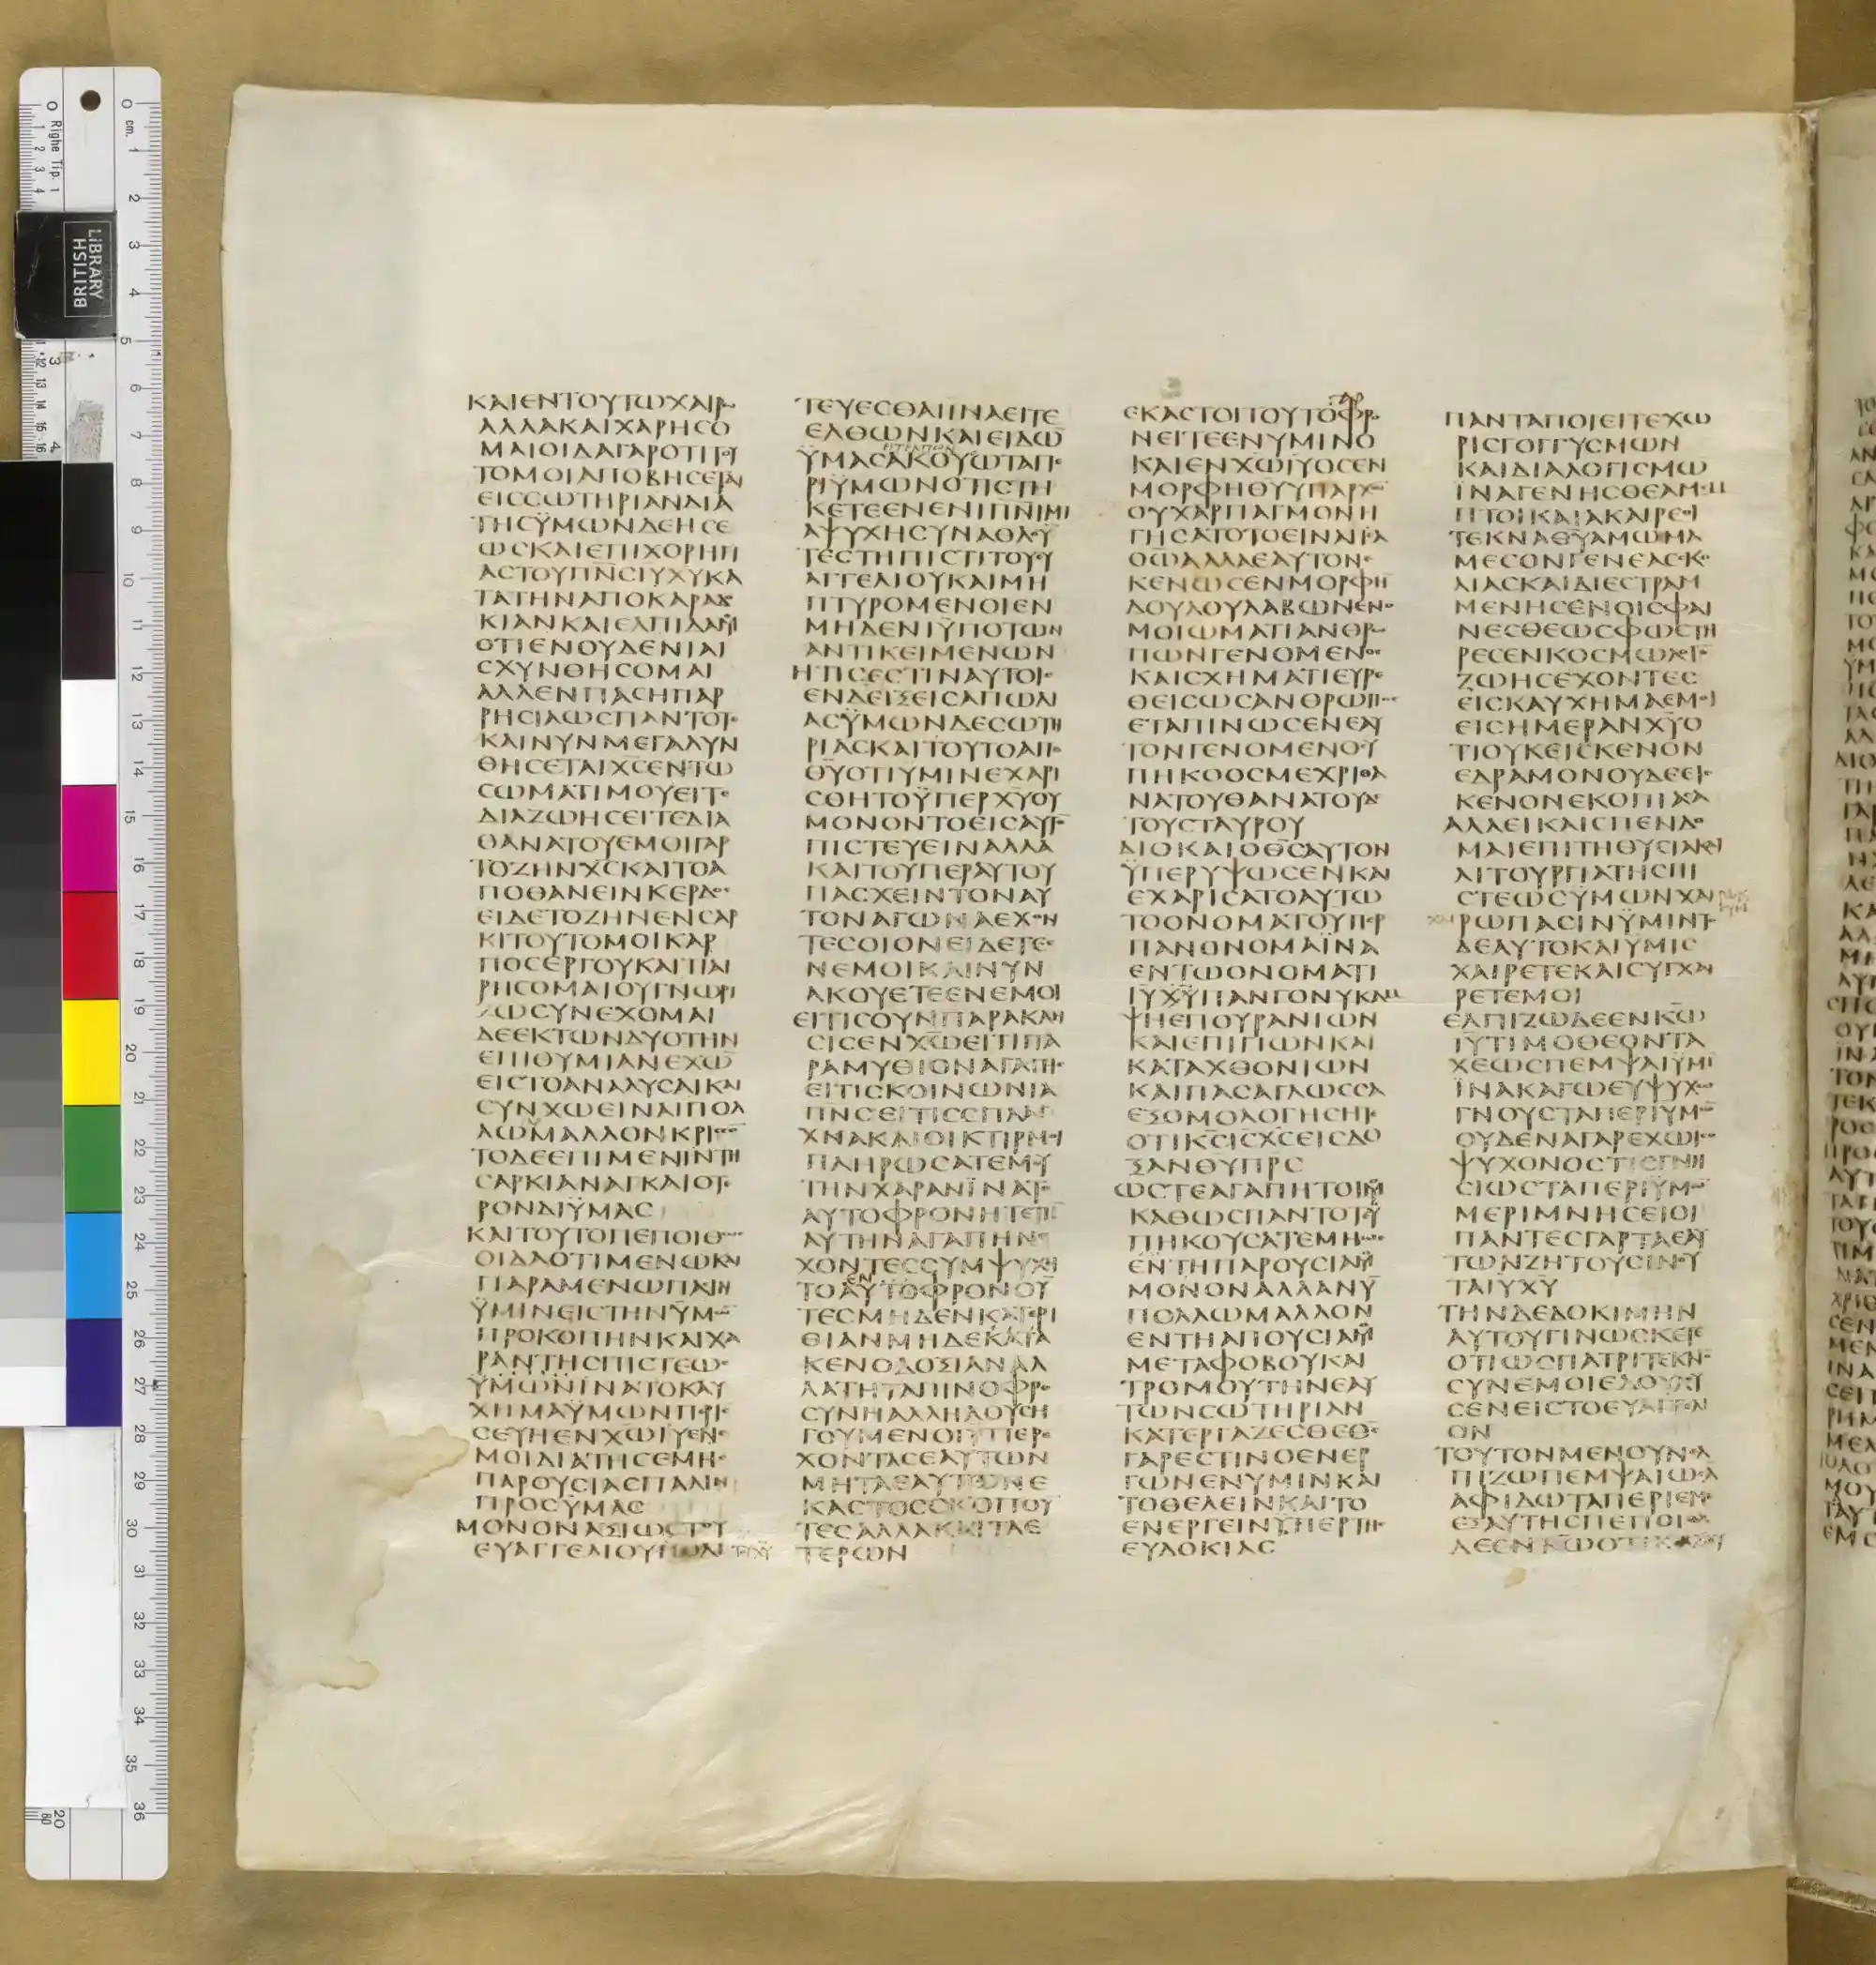 ΚΑΙΕΝΤΟΥΤΩΧΑΙΡω
ΑΛΛΑΚΑΙΧΑΡΗСΟ
ΜΑΙΟΙΔΑΓΑΡΟΤΙΤΟΥ
ΤΟΜΟΙΑΠΟΒΗСΕΤΑΙ
ΕΙССΩΤΗΡΙΑΝΔΙΑ
ΤΗСΫΜΩΝΔΕΗСΕ
ΩСΚΑΙΕΠΙΧΟΡΗΓΙ
ΑСΤΟΥΠΝ̅СΙΥ̅ΧΥ̅ΚΑ
ΤΑΤΗΝΑΠΟΚΑΡΑΔΟ
ΚΙΑΝΚΑΙΕΛΠΙΔΑΜΟΥ
ΟΤΙΕΝΟΥΔΕΝΙΑΙ
СΧΥΝΘΗСΟΜΑΙ
ΑΛΛΕΝΠΑСΗΠΑΡ
ΡΗСΙΑΩСΠΑΝΤΟΤΕ
ΚΑΙΝΥΝΜΕΓΑΛΥΝ
ΘΗСΕΤΑΙΧ̅С̅ΕΝΤΩ
СΩΜΑΤΙΜΟΥΕΙΤΕ
ΔΙΑΖΩΗСΕΙΤΕΔΙΑ
ΘΑΝΑΤΟΥΕΜΟΙΓΑΡ
ΤΟΖΗΝΧ̅С̅ΚΑΙΤΟΑ
ΠΟΘΑΝΕΙΝΚΕΡΔΟС
ΕΙΔΕΤΟΖΗΝΕΝСΑΡ
ΚΙΤΟΥΤΟΜΟΙΚΑΡ
ΠΟСΕΡΓΟΥΚΑΙΤΙΑΙ
ΡΗСΟΜΑΙΟΥΓΝΩΡΙ
ΖΩСΥΝΕΧΟΜΑΙ
ΔΕΕΚΤΩΝΔΥΟΤΗΝ
ΕΠΙΘΥΜΙΑΝΕΧΩ̅
ΕΙСΤΟΑΝΑΛΥСΑΙΚΑΙ
СΥΝΧ̅Ω̅ΕΙΝΑΙΠΟΛ
ΛΩΜΑΛΛΟΝΚΡΙССΟΝ
ΤΟΔΕΕΠΙΜΕΝΙΝΤΗ
СΑΡΚΙΑΝΑΓΚΑΙΟΤΕ
ΡΟΝΔΙΫΜΑС
ΚΑΙΤΟΥΤΟΠΕΠΟΙΘΩС
ΟΙΔΑΟΤΙΜΕΝΩΚΑΙ
ΠΑΡΑΜΕΝΩΠΑСΙΝ
ΫΜΙΝΕΙСΤΗΝΫΜΩ
ΠΡΟΚΟΠΗΝΚΑΙΧΑ
ΡΑΝΤΗСΠΙСΤΕΩС
ΫΜΩΝΪΝΑΤΟΚΑΥ
ΧΗΜΑΫΜΩΝΠΕΡΙС
СΕΥΗΕΝΧ̅Ω̅ΙΥ̅ΕΝΕ
ΜΟΙΔΙΑΤΗСΕΜΗС
ΠΑΡΟΥСΙΑСΠΑΛΙΝ
ΠΡΟСΫΜΑС
ΜΟΝΟΝΑΞΙΩСΤΟΥ
ΕΥΑΓΓΕΛΙΟΥ
ΤΕΥΕСΘΑΙΪΝΑΕΙΤΕ
ΕΛΘΩΝΚΑΙΕΙΔΩ̅
ΫΜΑСΑΚΟΥΩΤΑΠΕ
ΡΙΫΜΩΝΟΤΙСΤΗ
ΚΕΤΕΕΝΕΝΙΠΝ̅ΙΜΙ
ΑΨΥΧΗСΥΝΑΘΛΟΥ
ΤΕСΤΗΠΙСΤΙΤΟΥΕΥ
ΑΓΓΕΛΙΟΥΚΑΙΜΗ
ΠΤΥΡΟΜΕΝΟΙΕΝ
ΜΗΔΕΝΙΫΠΟΤΩΝ
ΑΝΤΙΚΕΙΜΕΝΩΝ
ΗΤΙСΕСΤΙΝΑΥΤΟΙС
ΕΝΔΕΙΞΕΙСΑΠΩΛΙ
ΑСΫΜΩΝΔΕСΩΤΗ
ΡΙΑСΚΑΙΤΟΥΤΟΑΠΟ
Θ̅Υ̅ΟΤΙΥΜΙΝΕΧΑΡΙ
СΘΗΤΟΫΠΕΡΧ̅Υ̅ΟΥ
ΜΟΝΟΝΤΟΕΙСΑΥΤΟ
ΠΙСΤΕΥΕΙΝΑΛΛΑ
ΚΑΙΤΟΥΠΕΡΑΥΤΟΥ
ΠΑСΧΕΙΝΤΟΝΑΥ
ΤΟΝΑΓΩΝΑΕΧΟΝ
ΤΕСΟΙΟΝΕΙΔΕΤΕΕ
ΝΕΜΟΙΚΑΙΝΥΝ
ΑΚΟΥΕΤΕΕΝΕΜΟΙ
ΕΙΤΙСΟΥΝΠΑΡΑΚΛΗ
СΙСΕΝΧ̅Ω̅ΕΙΤΙΠΑ
ΡΑΜΥΘΙΟΝΑΓΑΠΗС
ΕΙΤΙСΚΟΙΝΩΝΙΑ
ΠΝ̅СΕΙΤΙССΠΛΑΓ
ΧΝΑΚΑΙΟΙΚΤΙΡΜΟΙ
ΠΛΗΡΩСΑΤΕΜΟΥ
ΤΗΝΧΑΡΑΝΪΝΑΤΟ
ΑΥΤΟΦΡΟΝΗΤΕΤΗ
ΑΥΤΗΝΑΓΑΠΗΝΕ
ΧΟΝΤΕССΥΜΨΥΧΟΙ
ΤΟΑΥΤΟΦΡΟΝΟΥ
ΤΕСΜΗΔΕΝΚΑΤΕΡΙ
ΘΙΑΝΜΗΔΕΚΑΤΑ
ΚΕΝΟΔΟΞΙΑΝΑΛ
ΛΑΤΗΤΑΠΙΝΟΦΡΟ
СΥΝΗΑΛΛΗΛΟΥСΗ
ΓΟΥΜΕΝΟΙΫΠΕΡΕ
ΧΟΝΤΑСΕΑΥΤΩΝ
ΜΗΤΑΕΑΥΤΩΝΕ
ΚΑСΤΟССΚΟΠΟΥ
ΤΕСΑΛΛΑΚΑΙΤΑΕ
ΤΕΡΩΝ
ΕΚΑСΤΟΙΤΟΥΤΟΦΡΟ
ΝΕΙΤΕΕΝΥΜΙΝΟ
ΚΑΙΕΝΧ̅Ω̅ΙΥ̅ΟСΕΝ
ΜΟΡΦΗΘ̅Υ̅ΥΠΑΡΧΩ
ΟΥΧΑΡΠΑΓΜΟΝΗ
ΓΗСΑΤΟΤΟΕΙΝΑΙΙСΑ
Θ̅Ω̅ΑΛΛΑΕΑΥΤΟΝΕ
ΚΕΝΩСΕΝΜΟΡΦΗ
ΔΟΥΛΟΥΛΑΒΩΝΕΝΟ
ΜΟΙΩΜΑΤΙΑΝΘΡΩ
ΠΩΝΓΕΝΟΜΕΝΟС
ΚΑΙСΧΗΜΑΤΙΕΥΡΕ
ΘΕΙСΩСΑΝΘΡΩΠΟС
ΕΤΑΠΙΝΩСΕΝΕΑΥ
ΤΟΝΓΕΝΟΜΕΝΟΫ
ΠΗΚΟΟСΜΕΧΡΙΘΑ
ΝΑΤΟΥΘΑΝΑΤΟΥΔΕ
ΤΟΥСΤΑΥΡΟΥ
ΔΙΟΚΑΙΟΘ̅С̅ΑΥΤΟΝ
ΫΠΕΡΥΨΩСΕΝΚΑΙ
ΕΧΑΡΙСΑΤΟΑΥΤΩ
ΤΟΟΝΟΜΑΤΟΥΠΕΡ
ΠΑΝΟΝΟΜΑΪΝΑ
ΕΝΤΩΟΝΟΜΑΤΙ
ΙΥ̅Χ̅Υ̅ΠΑΝΓΟΝΥΚΑΜ
ΨΗΕΠΟΥΡΑΝΙΩΝ
ΚΑΙΕΠΙΓΙΩΝΚΑΙ
ΚΑΤΑΧΘΟΝΙΩΝ
ΚΑΙΠΑСΑΓΛΩССΑ
ΕΞΟΜΟΛΟΓΗСΗΤΕ
ΟΤΙΚ̅С̅ΙС̅Χ̅С̅ΕΙСΔΟ
ΞΑΝΘ̅Υ̅Π̅Ρ̅С̅
ΩСΤΕΑΓΑΠΗΤΟΙΜΟΥ
ΚΑΘΩСΠΑΝΤΟΤΕΫ
ΠΗΚΟΥСΑΤΕΜΗΩС
ΕΝΤΗΠΑΡΟΥСΙΑΜΟΥ
ΜΟΝΟΝΑΛΛΑΝΥ̅
ΠΟΛΛΩΜΑΛΛΟΝ
ΕΝΤΗΑΠΟΥСΙΑΜΟΥ
ΜΕΤΑΦΟΒΟΥΚΑΙ
ΤΡΟΜΟΥΤΗΝΕΑΥ
ΤΩΝСΩΤΗΡΙΑΝ
ΚΑΤΕΡΓΑΖΕСΘΕΘ̅С̅
ΓΑΡΕСΤΙΝΟΕΝΕΡ
ΓΩΝΕΝΥΜΙΝΚΑΙ
ΤΟΘΕΛΕΙΝΚΑΙΤΟ
ΕΝΕΡΓΕΙΝΫΠΕΡΤΗС
ΕΥΔΟΚΙΑС
ΠΑΝΤΑΠΟΙΕΙΤΕΧΩ
ΡΙСΓΟΓΓΥСΜΩΝ
ΚΑΙΔΙΑΛΟΓΙСΜΩ̅
ΪΝΑΓΕΝΗСΘΕΑΜΕΜ
ΠΤΟΙΚΑΙΑΚΑΙΡΕΟΙ
ΤΕΚΝΑΘ̅Υ̅ΑΜΩΜΑ
ΜΕСΟΝΓΕΝΕΑССΚΟ
ΛΙΑСΚΑΙΔΙΕСΤΡΑΜ
ΜΕΝΗСΕΝΟΙСΦΑΙ
ΝΕСΘΕΩСΦΩСΤΗ
ΡΕСΕΝΚΟСΜΩΛΟΓΟ
ΖΩΗСΕΧΟΝΤΕС
ΕΙСΚΑΥΧΗΜΑΕΜΟΙ
ΕΙСΗΜΕΡΑΝΧ̅Υ̅Ο
ΤΙΟΥΚΕΙСΚΕΝΟΝ
ΕΔΡΑΜΟΝΟΥΔΕΕΙС
ΚΕΝΟΝΕΚΟΠΙΑСΑ
ΑΛΛΕΙΚΑΙСΠΕΝΔΟ
ΜΑΙΕΠΙΤΗΘΥСΙΑΚΑΙ
ΛΙΤΟΥΡΓΙΑΤΗСΠΙ
СΤΕΩСΫΜΩΝΧΑΙ
ΡΩΠΑСΙΝΫΜΙΝΤΟ
ΔΕΑΥΤΟΚΑΙΥΜΙС
ΧΑΙΡΕΤΕΚΑΙСΥΓΧΑΙ
ΡΕΤΕΜΟΙ
ΕΛΠΙΖΩΔΕΕΝΚ̅Ω̅
ΙΥ̅ΤΙΜΟΘΕΟΝΤΑ
ΧΕΩСΠΕΜΨΑΙΫΜΙ
ΪΝΑΚΑΓΩΕΥΨΥΧΩ
ΓΝΟΥСΤΑΠΕΡΙΥΜΩ
ΟΥΔΕΝΑΓΑΡΕΧΩΙСΟ
ΨΥΧΟΝΟСΤΙСΓΝΗ
СΙΩСΤΑΠΕΡΙΫΜΩ
ΜΕΡΙΜΝΗСΕΙΟΙ
ΠΑΝΤΕСΓΑΡΤΑΕΑΥ
ΤΩΝΖΗΤΟΥСΙΝΟΥ
ΤΑΙΥ̅Χ̅Υ̅
ΤΗΝΔΕΔΟΚΙΜΗΝ
ΑΥΤΟΥΓΙΝΩСΚΕΤΕ
ΟΤΙΩСΠΑΤΡΙΤΕΚΝΟ
СΥΝΕΜΟΙΕΔΟΥΛΕΥ
СΕΝΕΙСΤΟΕΥΑΓΓΕΛΙ
ΟΝ
ΤΟΥΤΟΝΜΕΝΟΥΝΕΛ
ΠΙΖΩΠΕΜΨΑΙΩСΑ
ΑΦΙΔΩΤΑΠΕΡΙΕΜΕ
ΕΞΑΥΤΗСΠΕΠΟΙΘΑ
ΔΕΕΝΚ̅Ω̅ΟΤΙ